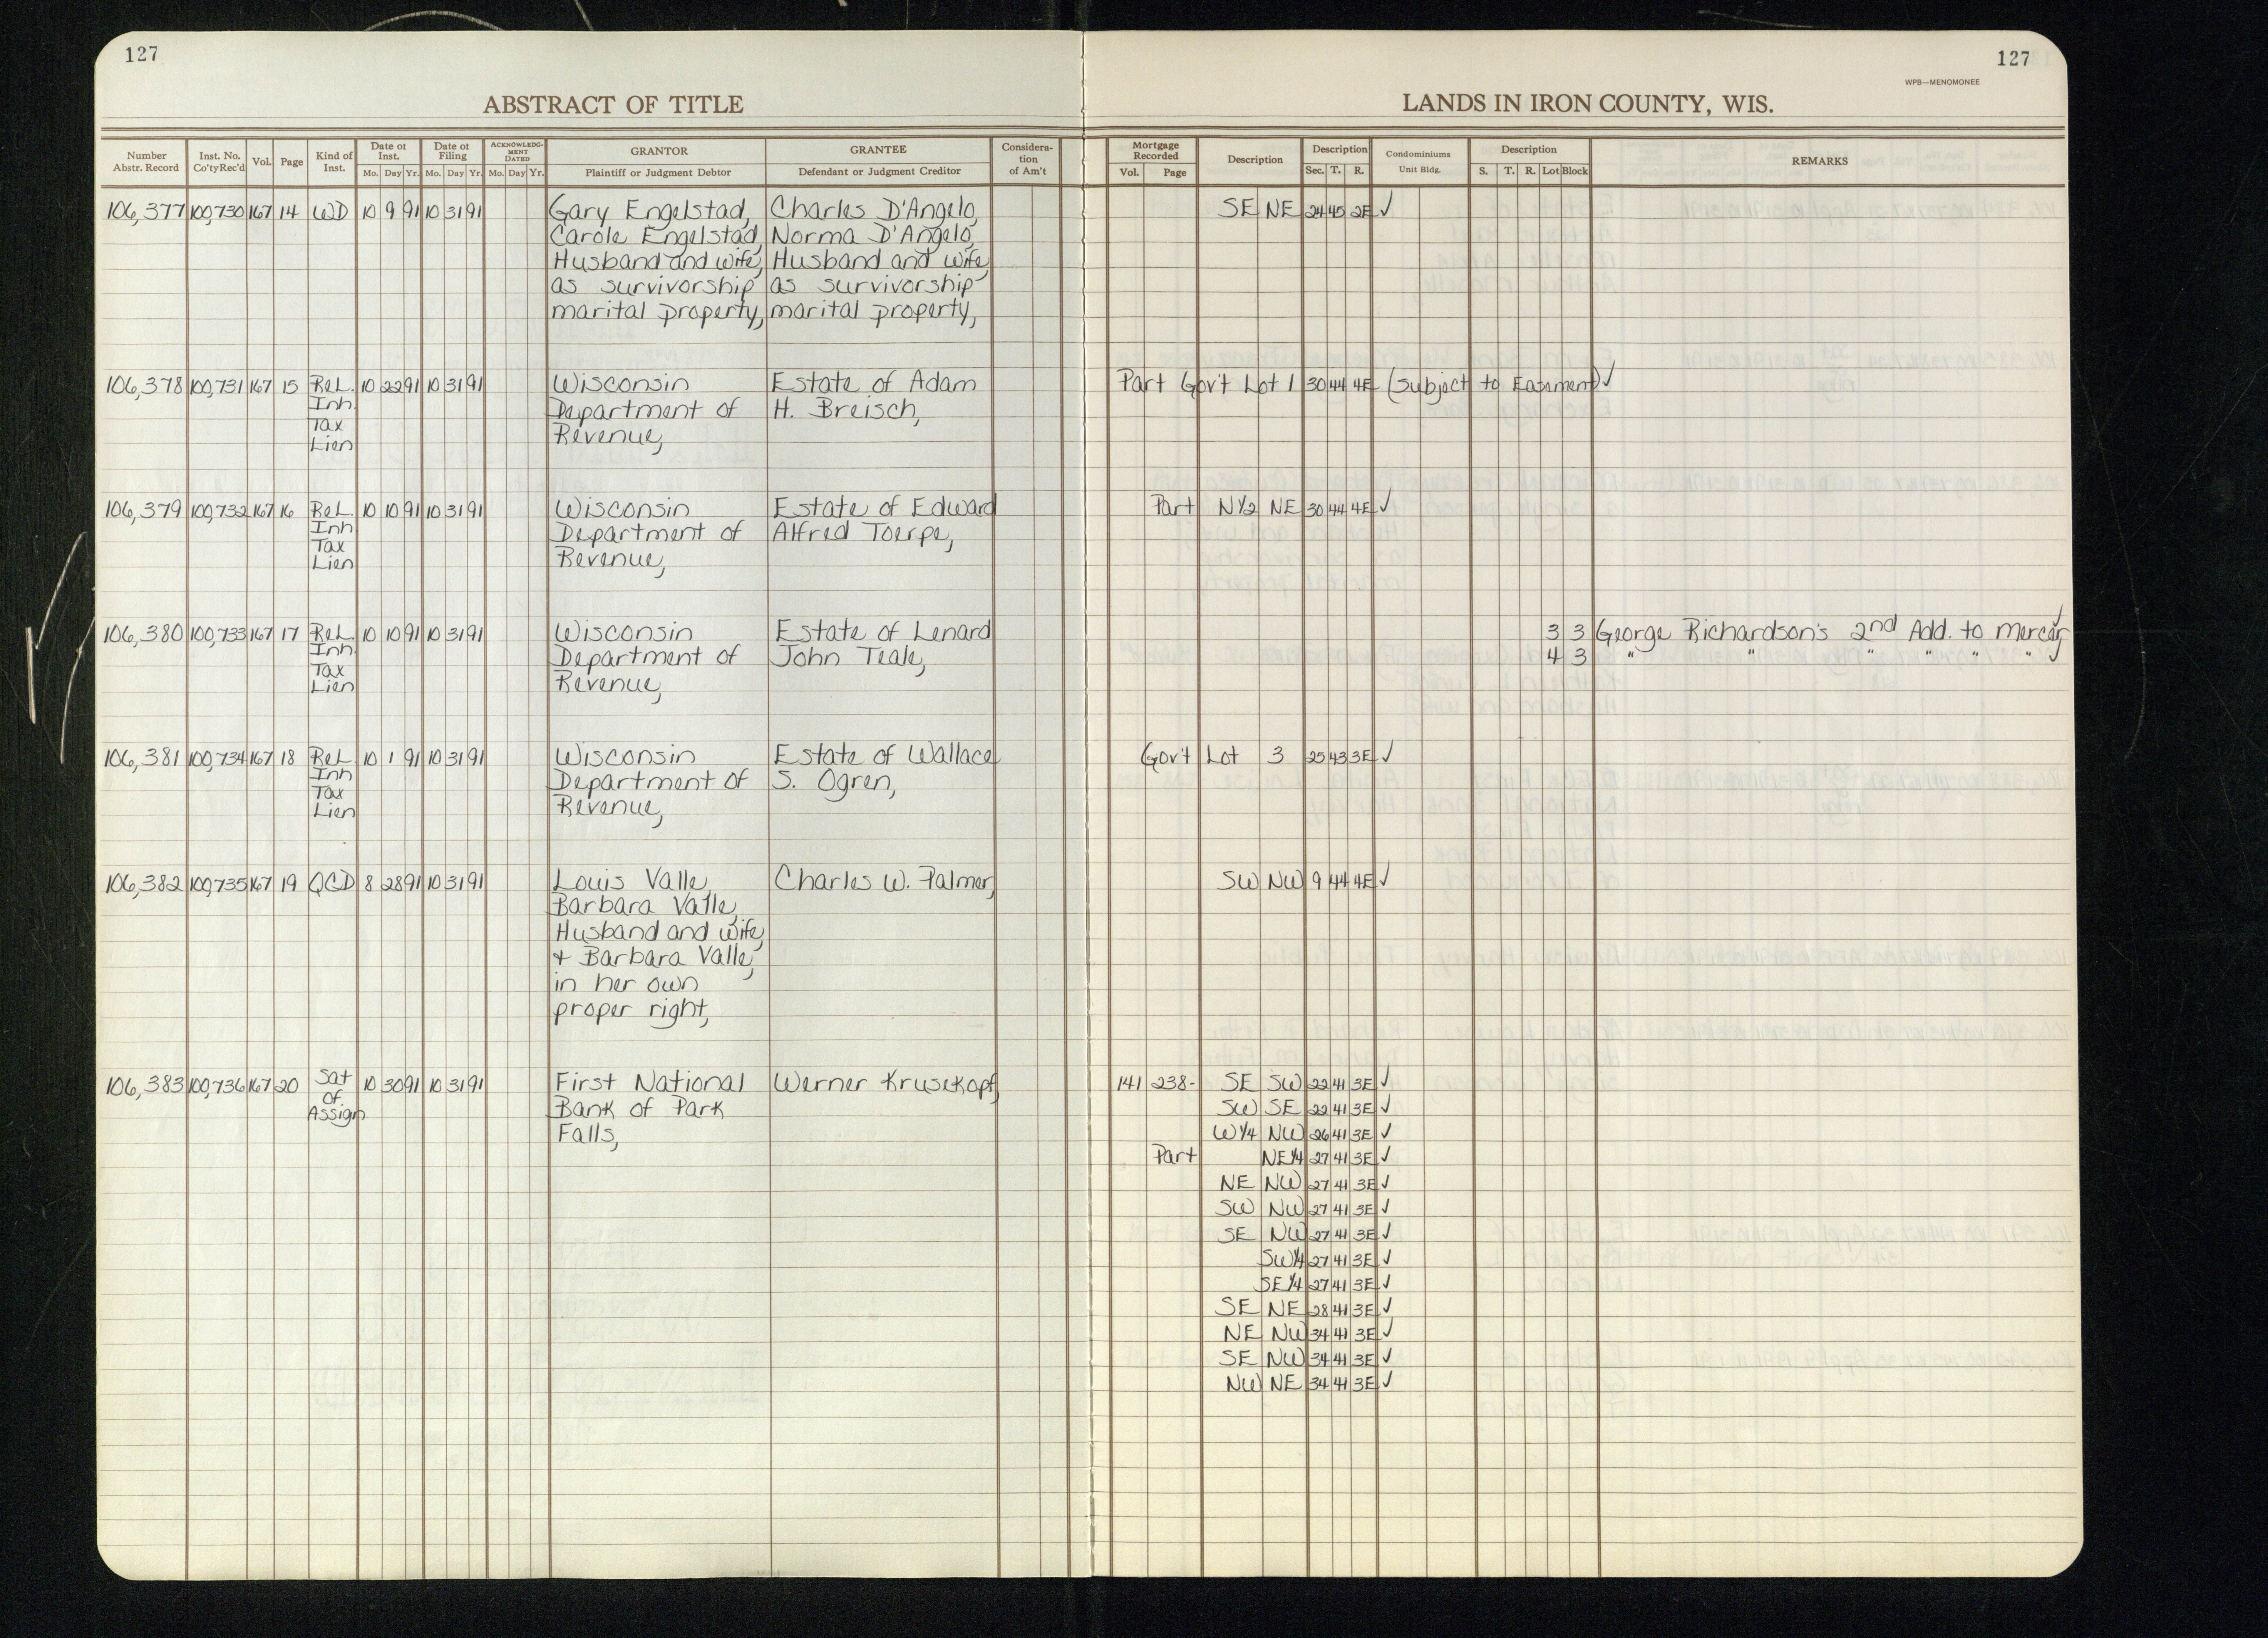 127
127
WPB—MENOMONEE
ABSTRACT OF TITLE
LANDS IN IRON COUNTY, WIS.
Number Abstr. Record Inst. No. Co'ty Rec'd Vol. Page Kind of Inst. Date of Inst. Mo. Day Yr. Date of Filing Mo. Day Yr. ACKNOWLEDG-MENT DATED Mo. Day Yr. GRANTOR Plaintiff or Judgment Debtor GRANTEE Defendant or Judgment Creditor Considera-tion of Am't Mortgage Recorded Vol. Page Description Description Sec. T. R. Condominiums Unit Bldg. Description S. T. R. Lot Block REMARKS
106,377 100,730 167 14 WD 10 9 91 10 31 91 Gary Engelstad, Charles D'Angelo, SE NE 24 45 2E ✓
Carole Engelstad, Norma D'Angelo,
Husband and wife, Husband and wife,
as survivorship as survivorship
marital property, marital property,
106,378 100,731 167 15 Rel. 10 22 91 10 31 91 Wisconsin Estate of Adam Part Gov't Lot 1 30 44 4E (Subject to Easement) ✓
Inh. Department of H. Breisch,
Tax Revenue,
Lien
106,379 100,732 167 16 Rel. 10 10 91 10 31 91 Wisconsin Estate of Edward Part N½ NE 30 44 4E ✓
Inh. Department of Alfred Toerpe,
Tax Revenue,
Lien
106,380 100,733 167 17 Rel. 10 10 91 10 31 91 Wisconsin Estate of Lenard 3 3 George Richardson's 2nd Add. to Mercer, ✓
Inh. Department of John Teale, 4 3 " " " " " " ✓
Tax Revenue,
Lien
106,381 100,734 167 18 Rel. 10 1 91 10 31 91 Wisconsin Estate of Wallace Gov't Lot 3 25 43 3E ✓
Inh Department of S. Ogren,
Tax Revenue,
Lien
106,382 100,735 167 19 QCD 8 28 91 10 31 91 Louis Valle, Charles W. Palmer, SW NW 9 44 4E ✓
Barbara Valle,
Husband and wife,
+ Barbara Valle,
in her own
proper right,
106,383 100,736 167 20 Sat 10 30 91 10 31 91 First National Werner Krusekopf, 141 238- SE SW 22 41 3E ✓
of Bank of Park SW SE 22 41 3E ✓
Assign Falls, W¼ NW 26 41 3E ✓
Part NE¼ 27 41 3E ✓
NE NW 27 41 3E ✓
SW NW 27 41 3E ✓
SE NW 27 41 3E ✓
SW¼ 27 41 3E ✓
SE¼ 27 41 3E ✓
SE NE 28 41 3E ✓
NE NW 34 41 3E ✓
SE NW 34 41 3E ✓
NW NE 34 41 3E ✓